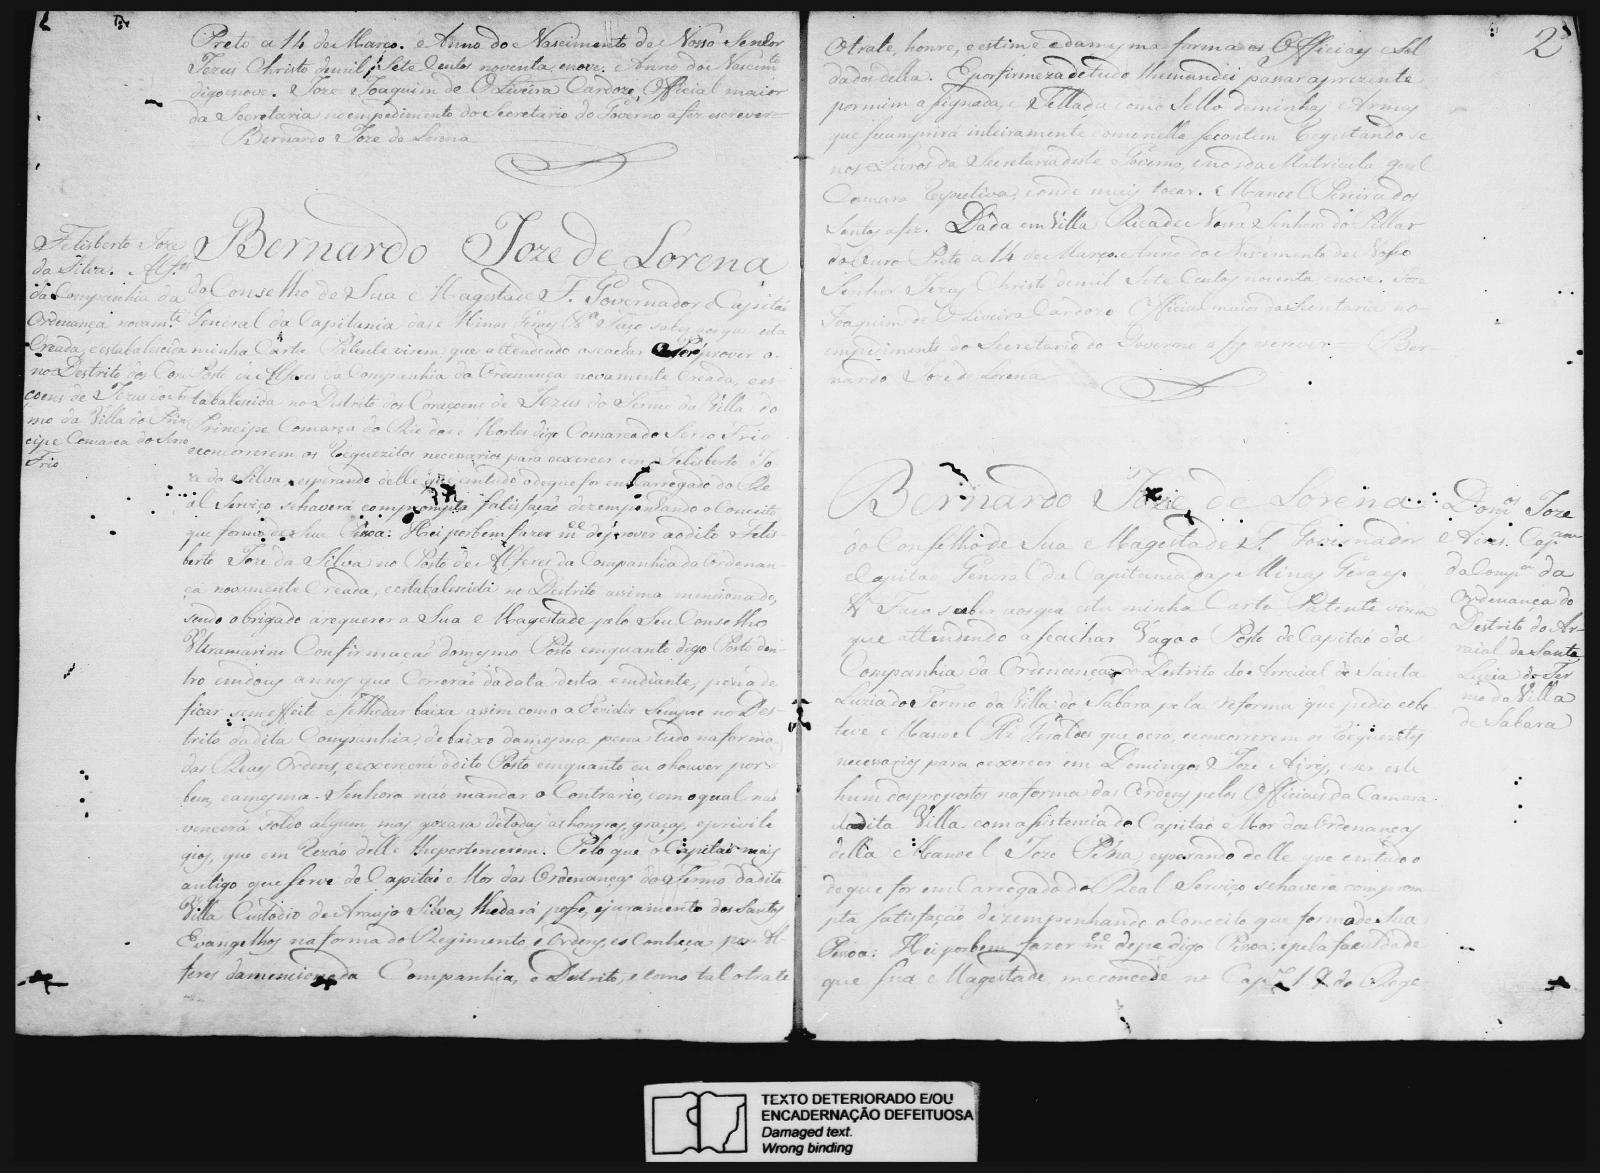 Preto a 14 de Março. e Anno do Nascimento de Nosso Senhor
Jezus Christo demil, Sete Centos noventa enove. e Anno do Nascim.to
digo enove. Joze Joaquim de Oliveira Cardozo, Official maior
da Secretaria no empedimento do Secretario do Governo afez escrever=
Bernardo Joze de Lorena
Felisberto Joze
da Silva. Alf.es
da Companhia da
Ordenança novam.te
Creada, e estabalescida
no Destrito dos Cora
çoens de Jezus do Ter
mo da Villa do Prin
cipe Comarca do Serro
Frio
Bernardo Joze de Lorena
do Conselho de Sua Magestade F. Governador e Capitaõ
General da Capitania das Minas Geraes &.a Faço saber aosque esta
minha Carta Patente virem, que attendendo aseachar prover o
Posto de Alferes da Companhia da Ordenança novamente Creada, e es-
tabalescida no Destrito dos Coraçoens de Jezus do Termo da Villa do
Principe Comarca do Rio das Mortes digo Comarca do Serro Frio
econcorrerem os Requezitos necessarios para oexercer em Felisberto Jo
ze da Silva, esperando delle que emtudo odeque for emcarregado do Re
al Serviço sehaverá comprompta satisfaçaõ dezempenhando o Conceito
que formo de Sua Pessoa: Hei porbem fazer m.ce de prover aodito Felis-
berto Joze da Silva no Posto de Alferes da Companhia da Ordenan-
ça novamente Creada, e estabalescida no Destrito assima mencionado,
sendo obrigado arequerer a Sua Magestade pelo Seu Conselho
Ultramarino Confirmaçaõ domesmo Posto emquanto digo Posto den-
tro emdous annos que Correraõ dadata desta emdiante, pena de
ficar sem effeito e selhedar baixa assim como a Rezidir sempre no Des-
trito dadita Companhia, debaixo damesma pena tudo naforma
das Reaes Ordens, e exercerá odito Posto emquanto eu ohouver por
bem, eamesma Senhora naõ mandar o Contrario, com oqual naõ
vencerá soldo algum mas gozara detodas as honras, graças, eprivile
gios, que em Rezaõ delle lhepertencerem. Pelo que o Capitaõ mais
antigo que serve de Capitaõ Mor das Ordenanças do Termo dadita
Villa Custodio de Araujo Silva, lhedará posse, ejuramento dos Santos
Evangelhos naforma do Regimento, e Ordens, eo Conheça por Al-
feres damencionada Companhia, e Destrito, e como tal otrate
2
Otrate, honre, e estime edamesma forma os Officiaes e Sol
dados della. Eporfirmeza detudo lhemandei passar aprezente
pormim assignada, e Sellada como Sello deminhas Armas
que secumprirá inteiramente comonella secontem Registandose
nos Livros da Secretaria deste Governo, enosda Matricula geral
Camara Respectiva, eonde mais tocar. Manoel Pereira dos
Santos afez. Dada em Villa Rica de Nossa Senhora do Pillar
do Ouro Preto a 14 de Março e Anno do Nascimento de Nosso
Senhor Jezus Christo demil Sete Centos noventa enove. Joze
Joaquim de Oliveira Cardozo Official maior da Secretaria no
empedimento do Secretario do Governo a fez escrever= Ber-
nardo Joze de Lorena
Bernardo Joze de Lorena
do Conselho de Sua Magestade F. Governador
e Capitaõ General da Capitania das Minas Geraes
&.a Faço saber aosque esta minha Carta Patente virem
que attendendo aseachar Vago o Posto de Capitaõ da
Companhia da Ordenança do Destrito do Arraial de Santa
Luzia do Termo da Villa do Sabara pela reforma que pedio eobe
teve Manoel Giraldes que oera, econcorrerem os Requezitos
necessarios para oexercer em Domingos Joze Aires, e ser este
hum dospropostos naforma das Ordens pelos Officiaes da Camara
dadita Villa com assistencia do Capitaõ Mor das Ordenanças
della Manoel Joze esperando delle que emtudo o
deque for em Carregado do Real Serviço sehaverá comprom-
pta satisfaçaõ dezempenhando o Conceito que formo de Sua
Pessoa: Hei porbem fazer m.ce depe digo Pessoa: epela faculdade
que Sua Magestade meconcede no Cap. do Rege-
Dom.os Joze
Aires. Cap.am
da Comp.a da
Ordenança do
Destrito do Ar-
raial de Santa
Luzia do Ter
mo da Villa
de Sabara
TEXTO DETERIORADO E/OU
ENCADERNAÇÃO DEFEITUOSA
Damaged text.
Wrong binding